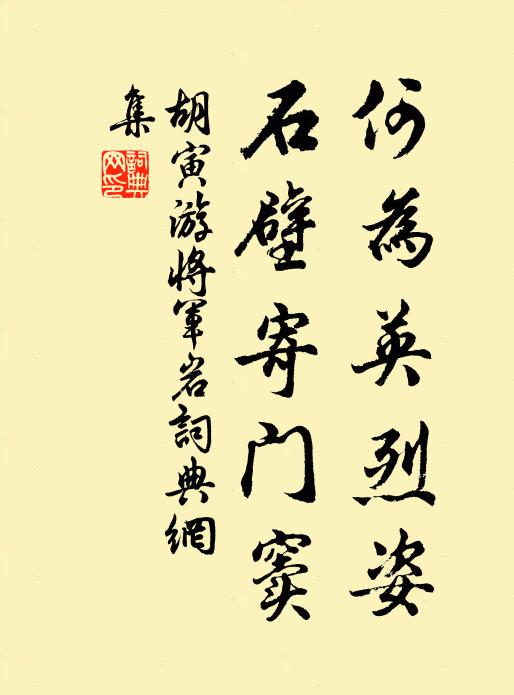 何為英烈姿
石壁寄门窦
胡寅游將軍岩詞典網
集
詞典網印